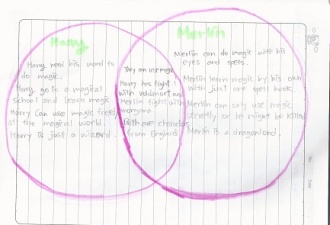 Harry
Merlin
Merlin can do magic with his
eyes and spells.
Harry need his wand to
do magic.
They can use magic
Harry go to a magical
school and learn magic
Harry has fight
with Voldmort and
Merlin fight with
Merlin learn magic by his own
with just one spell book.
Harry can use magic freely
at the magical world.
Merlin can only use magic
secretly or he might be killed
Both are
from England
Harry is just a wizard.
Merlin is a dragonlord.